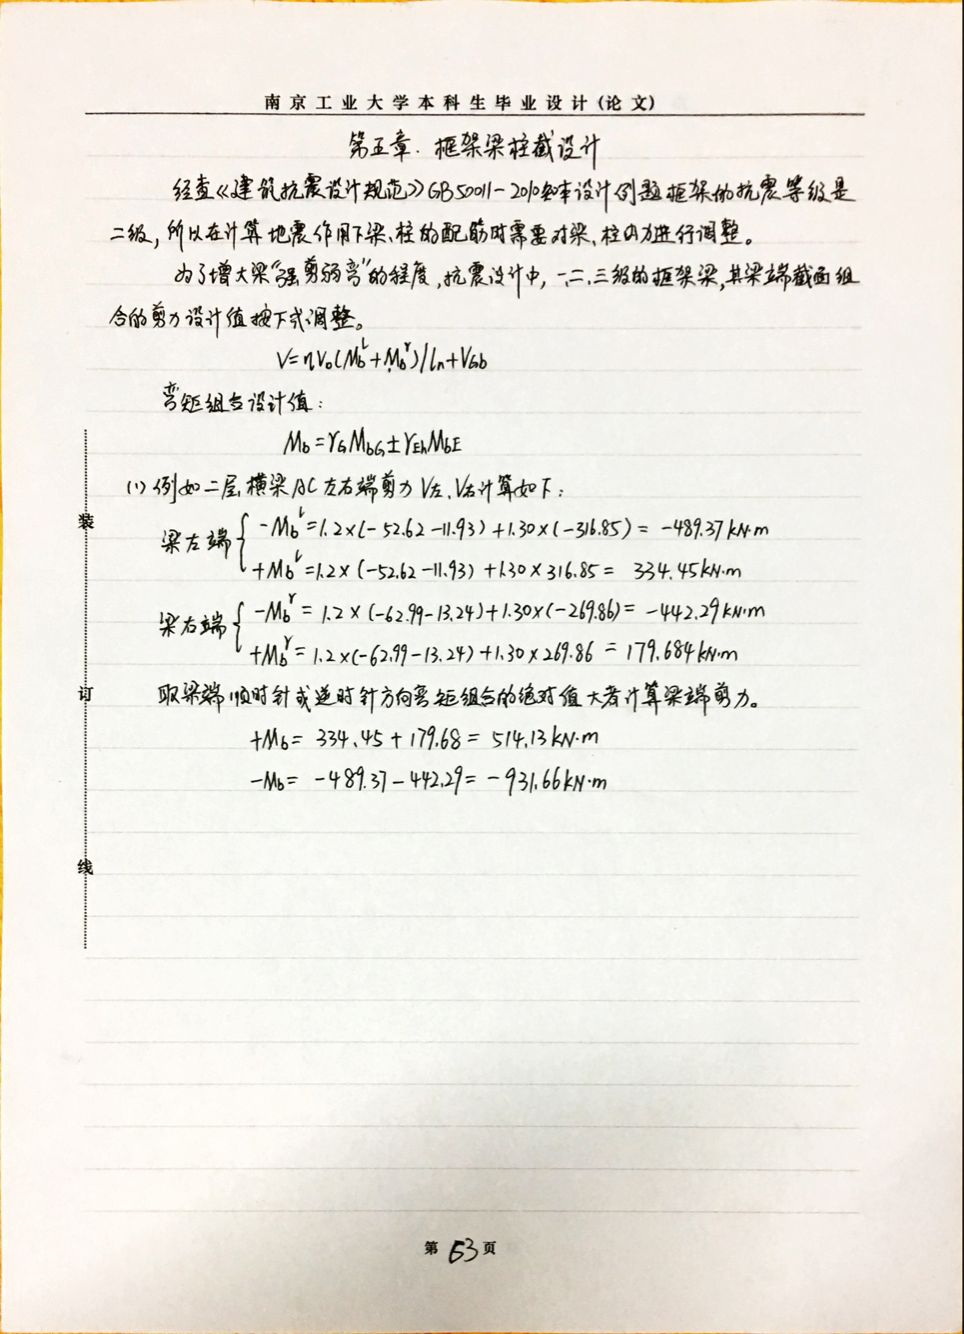 南京工业大学本科生毕业设计(论文)
第五章. 框架梁柱截设计
经查《建筑抗震设计规范》GB50011-2010知本设计例题框架的抗震等级是
二级，所以在计算地震作用下梁、柱的配筋时需要对梁、柱内力进行调整。
为了增大梁"强剪弱弯"的程度，抗震设计中，一、二、三级的框架梁，其梁端截面组
合的剪力设计值按下式调整。
V=ηVb(Mb^l+Mb^r)/ln+VGb
弯矩组合设计值：
Mb=γGMbG±γEhMbE
(1) 例如二层横梁AC左右端剪力V左、V右计算如下：
梁左端 { -Mb^l=1.2×(-52.62-11.93)+1.30×(-316.85)= -489.37kN·m
+Mb^l=1.2×(-52.62-11.93)+1.30×316.85= 334.45kN·m
梁右端 { -Mb^r=1.2×(-62.99-13.24)+1.30×(-269.86)= -442.29kN·m
+Mb^r=1.2×(-62.99-13.24)+1.30×269.86=179.684kN·m
取梁端顺时针或逆时针方向弯矩组合的绝对值大者计算梁端剪力。
+Mb= 334.45+179.68= 514.13kN·m
-Mb= -489.37-442.29= -931.66kN·m
装
订
线
第 53 页